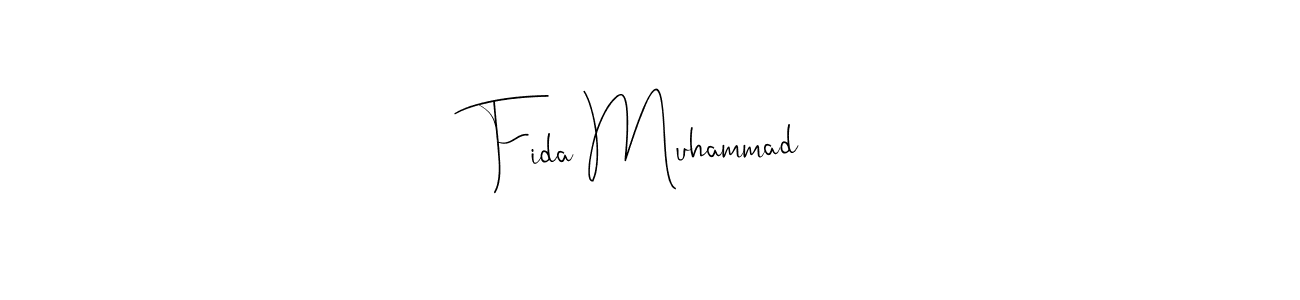 Fida Muhammad